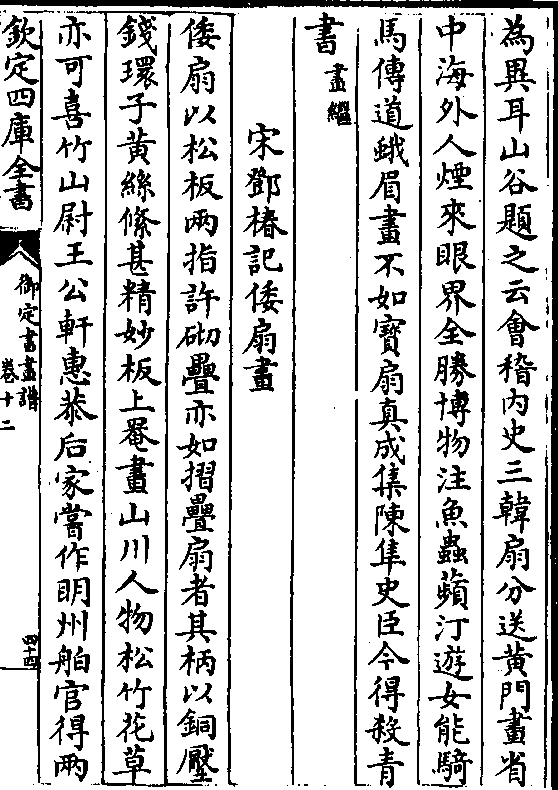 為異耳山谷題之云會稽內史三韓扇分送黄門畫省
中海外人煙來眼界全勝博物注魚蟲蘋汀遊女能騎
馬傳道蛾眉畫不如寳扇真成集陳隼史臣今得殺青
書畫繼
宋鄧椿記倭扇畫
倭扇以松板兩指許砌疊亦如摺疊扇者其柄以銅壓
錢環子黄絲絛甚精妙板上罨畫山川人物松竹花草
亦可喜竹山尉王公軒惠恭后家嘗作明州舶官得兩
欽定四庫全書
御定書畫譜
卷十二
四十四